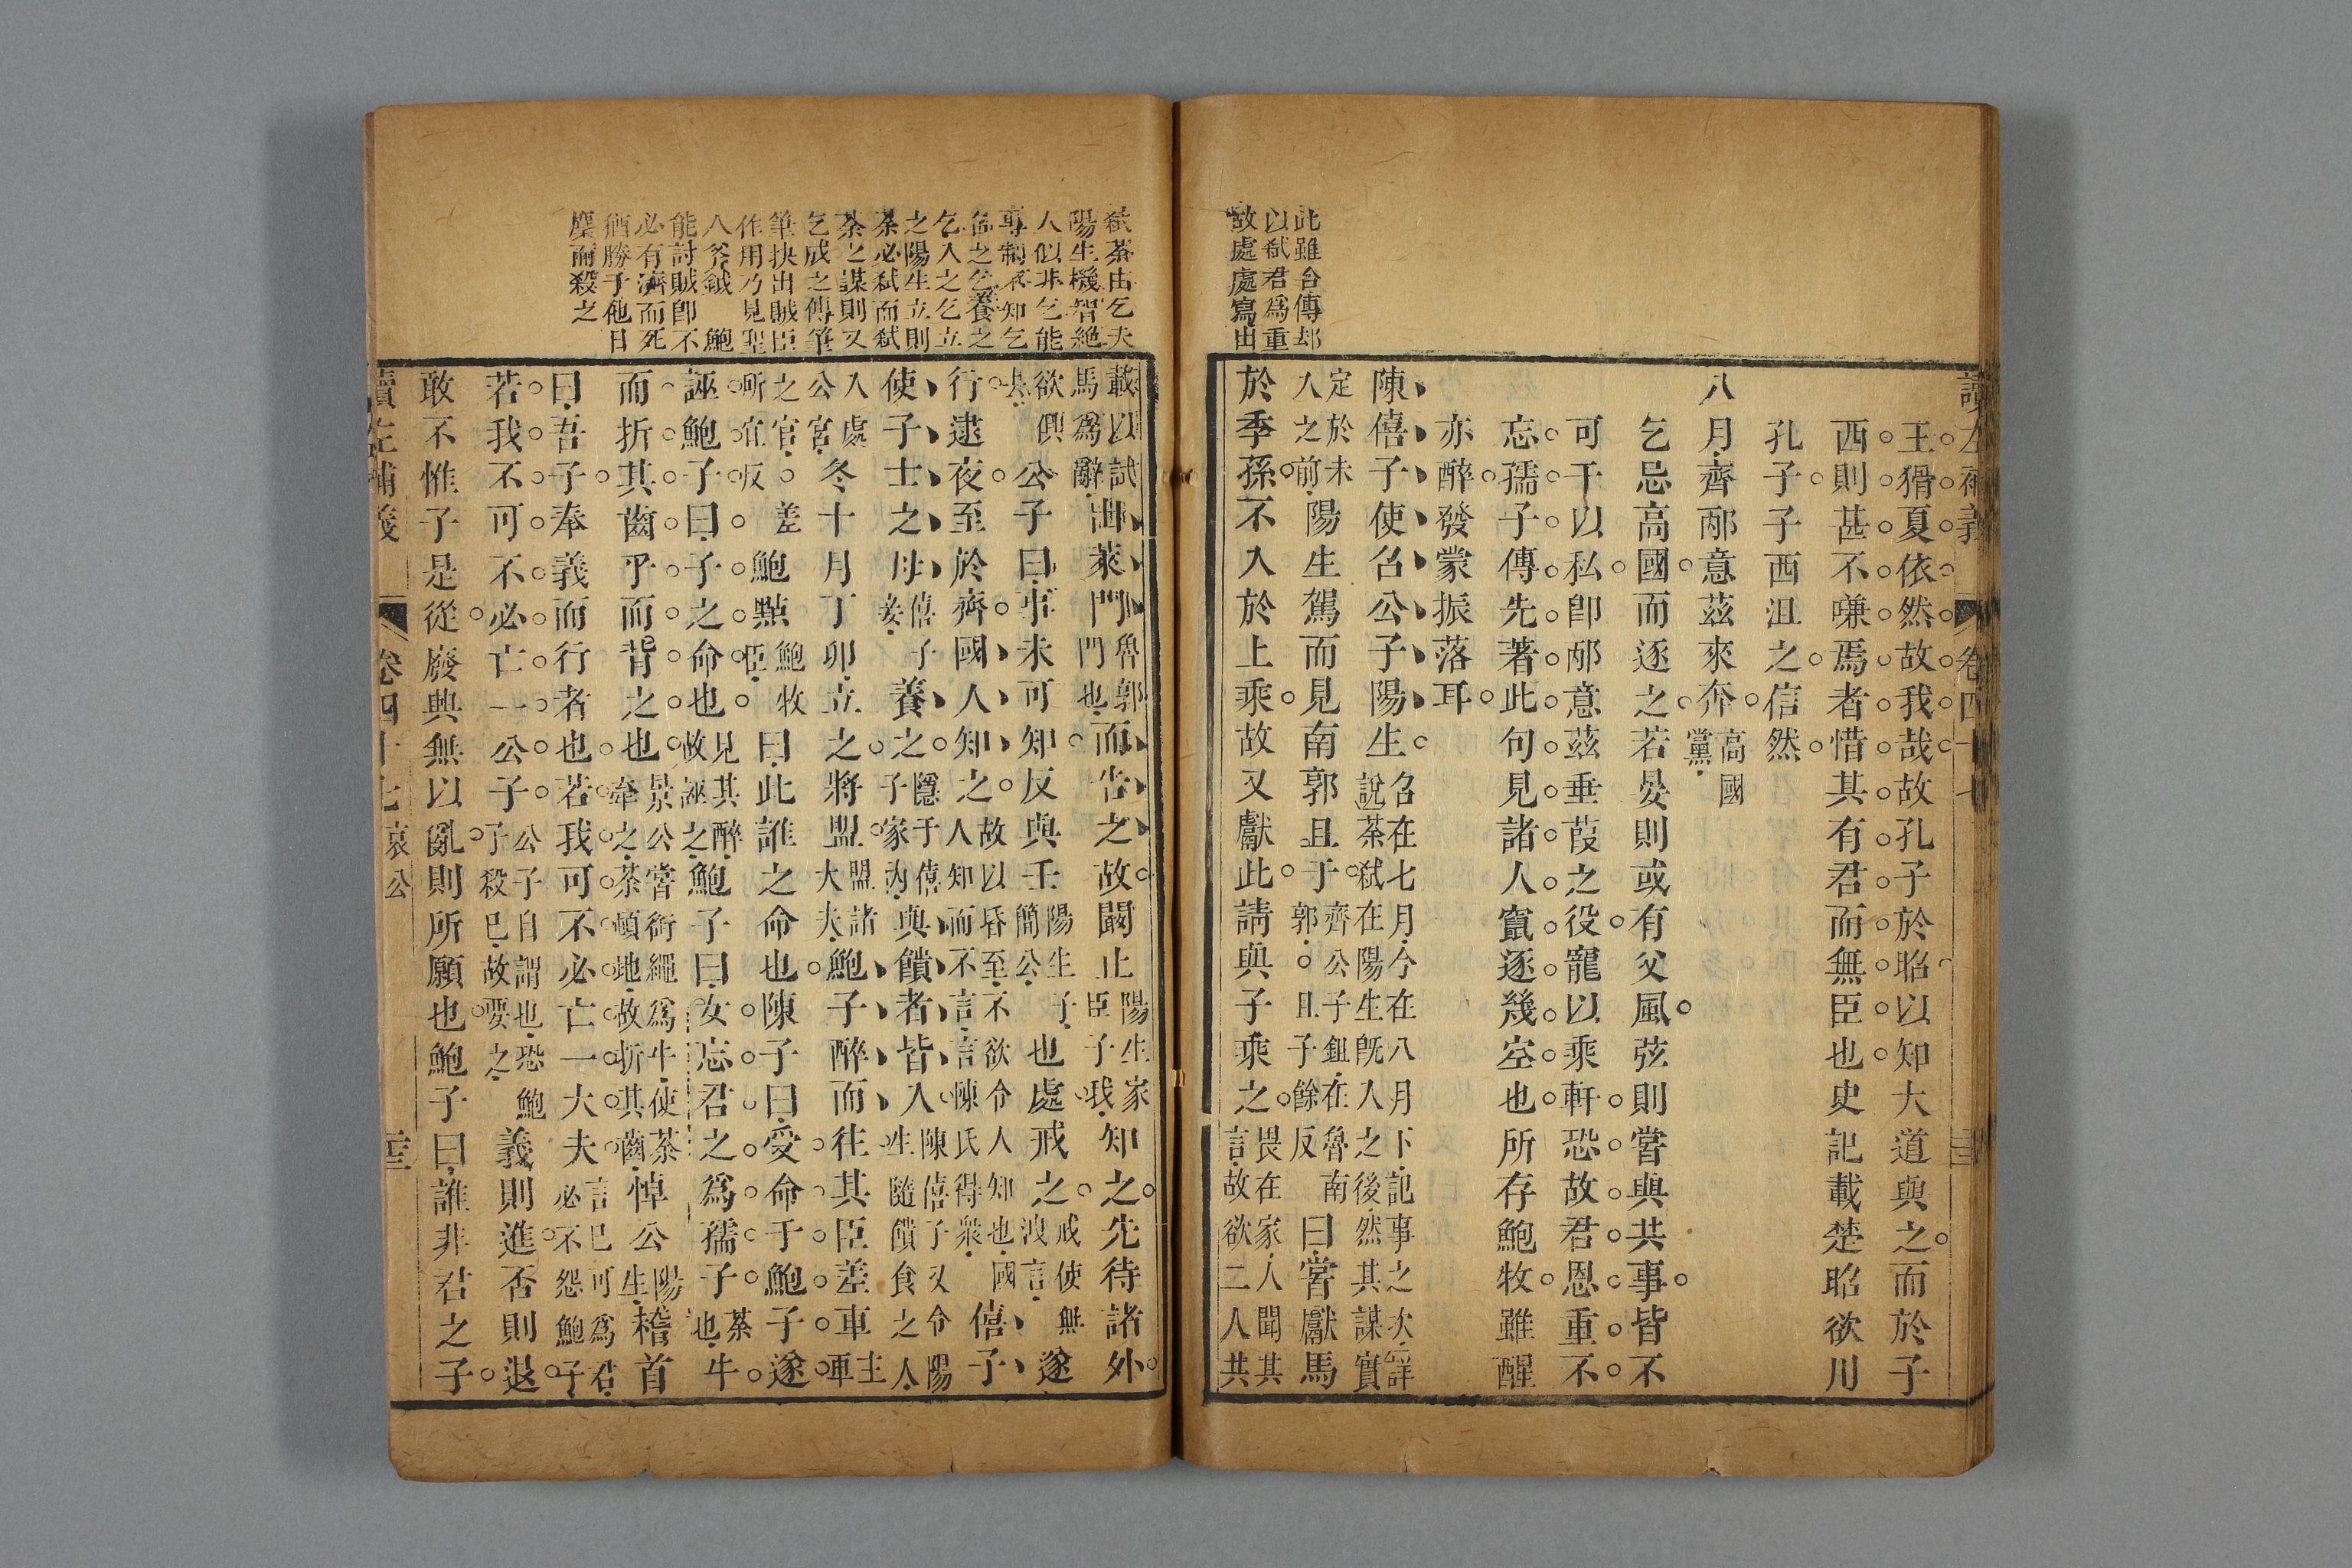 讀左補義
卷四十七
王猾夏依然故我哉故孔子於昭以知大道與之而於子
西則甚不嗛焉者惜其有君而無臣也史記載楚昭欲用
孔子子西沮之信然
八月齊邴意茲來奔高國
黨
乞忌高國而逐之若晏則或有父風弦則嘗與共事皆不
可干以私卽邴意茲垂葭之役寵以乘軒恐故君恩重不
忘孺子傳先著此句見諸人竄逐幾空也所存鮑牧雖醒
亦醉發蒙振落耳
陳僖子使召公子陽生召在七月今在八月下記事之次詳
說荼弒在陽生旣入之後然其謀實
定於未
人之前陽生駕而見南郭且于齊公子鉏在魯南
郭且子餘反曰嘗獻馬
於季孫不入於上乘故又獻此請與子乘之畏在家人聞其
言故欲二人共
此雖合傳却
以弒君爲重
故處處寫出
載以試
馬爲辭出萊門魯郭
門也而告之故闞止陽生家
臣子我知之先待諸外
欲俱
去公子曰事未可知反與壬陽生子
簡公也處戒之戒使無
洩言遂
行逮夜至於齊國人知之故以昏至不欲令人知也國
人知而不言言陳氏得衆僖子
使子士之母僖子
妾養之隱于僖
子家內與饋者皆入陳僖子又令陽
生隨饋食之人
入處
公宮冬十月丁卯立之將盟盟諸
大夫鮑子醉而往其臣差車主
車
之官差
所宜反鮑點鮑牧
臣曰此誰之命也陳子曰受命于鮑子遂
誣鮑子曰子之命也見其醉
故誣之鮑子曰女忘君之爲孺子荼
也牛
而折其齒乎而背之也景公嘗銜繩爲牛使荼
牽之荼頓地故折其齒悼公陽
生稽首
曰吾子奉義而行者也若我可不必亡一大夫言已可爲君
必不怨鮑子
若我不可不必亡一公子公子自謂也恐鮑
子殺已故要之義則進否則退
敢不惟子是從廢興無以亂則所願也鮑子曰誰非君之子
弒荼由乞夫
陽生機智絶
人似非乞能
專制不知乞
召之乞養之
乞入之乞立
之陽生立則
荼必弒而弒
荼之謀則又
乞成之傳筆
筆抉出賊臣
作用乃見聖
人斧鉞 鮑
能討賊卽不
必有濟而死
猶勝于他日
麇而殺之
讀左補義
卷四十七
哀公